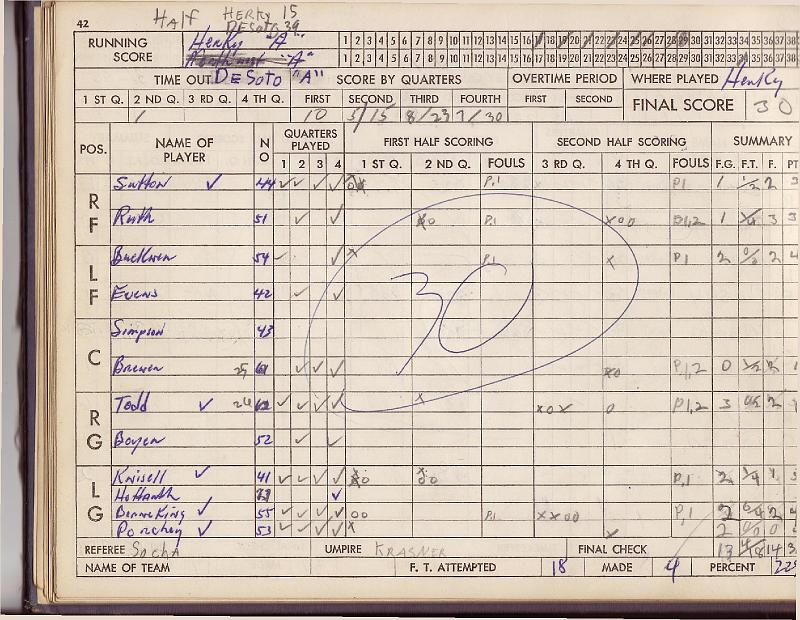 42
HALF HERKY 15
DESOTO 39
RUNNING SCORE Herky "A" 1 2 3 4 5 6 7 8 9 10 11 12 13 14 15 16 17 18 19 20 21 22 23 24 25 26 27 28 29 30 31 32 33 34 35 36 37 38
"A" 1 2 3 4 5 6 7 8 9 10 11 12 13 14 15 16 17 18 19 20 21 22 23 24 25 26 27 28 29 30 31 32 33 34 35 36 37 38
TIME OUT DESOTO "A" SCORE BY QUARTERS OVERTIME PERIOD WHERE PLAYED Herky
1 ST Q. 2 ND Q. 3 RD Q. 4 TH Q. FIRST SECOND THIRD FOURTH FIRST SECOND FINAL SCORE 30
1 10 5/15 8/23 7/30
POS. NAME OF PLAYER NO QUARTERS PLAYED FIRST HALF SCORING SECOND HALF SCORING SUMMARY
1 2 3 4 1 ST Q. 2 ND Q. FOULS 3 RD Q. 4 TH Q. FOULS F.G. F.T. F. PT
RF Sutton ✓ 44 ✓ ✓ ✓ ✓ P,1 P,1 1 1/2 2 3
Ruth 51 ✓ ✓ P,1 x o o 1 3 3
LF 54 ✓ ✓ x P,1 x P,1 2 0/2 2 4
Evens 42 ✓ ✓
C Simpson 43
Brewer 25 ✓ ✓ ✓ P,1,2 0
30
RG Todd ✓ 24 ✓ ✓ ✓ ✓ x x o x o P,1,2 3 2
Boyer 52 ✓ ✓
LG Knisell ✓ 41 ✓ ✓ ✓ ✓ P,1 2 1/4 1
✓
✓ 55 ✓ ✓ ✓ ✓ o o P,1 x x o o P,1 2 2
✓ 53 ✓ ✓ ✓ ✓ x x 2 0
REFEREE Socha UMPIRE KRASNER FINAL CHECK 13 4/18 14
NAME OF TEAM F. T. ATTEMPTED 18 MADE 4 PERCENT 22